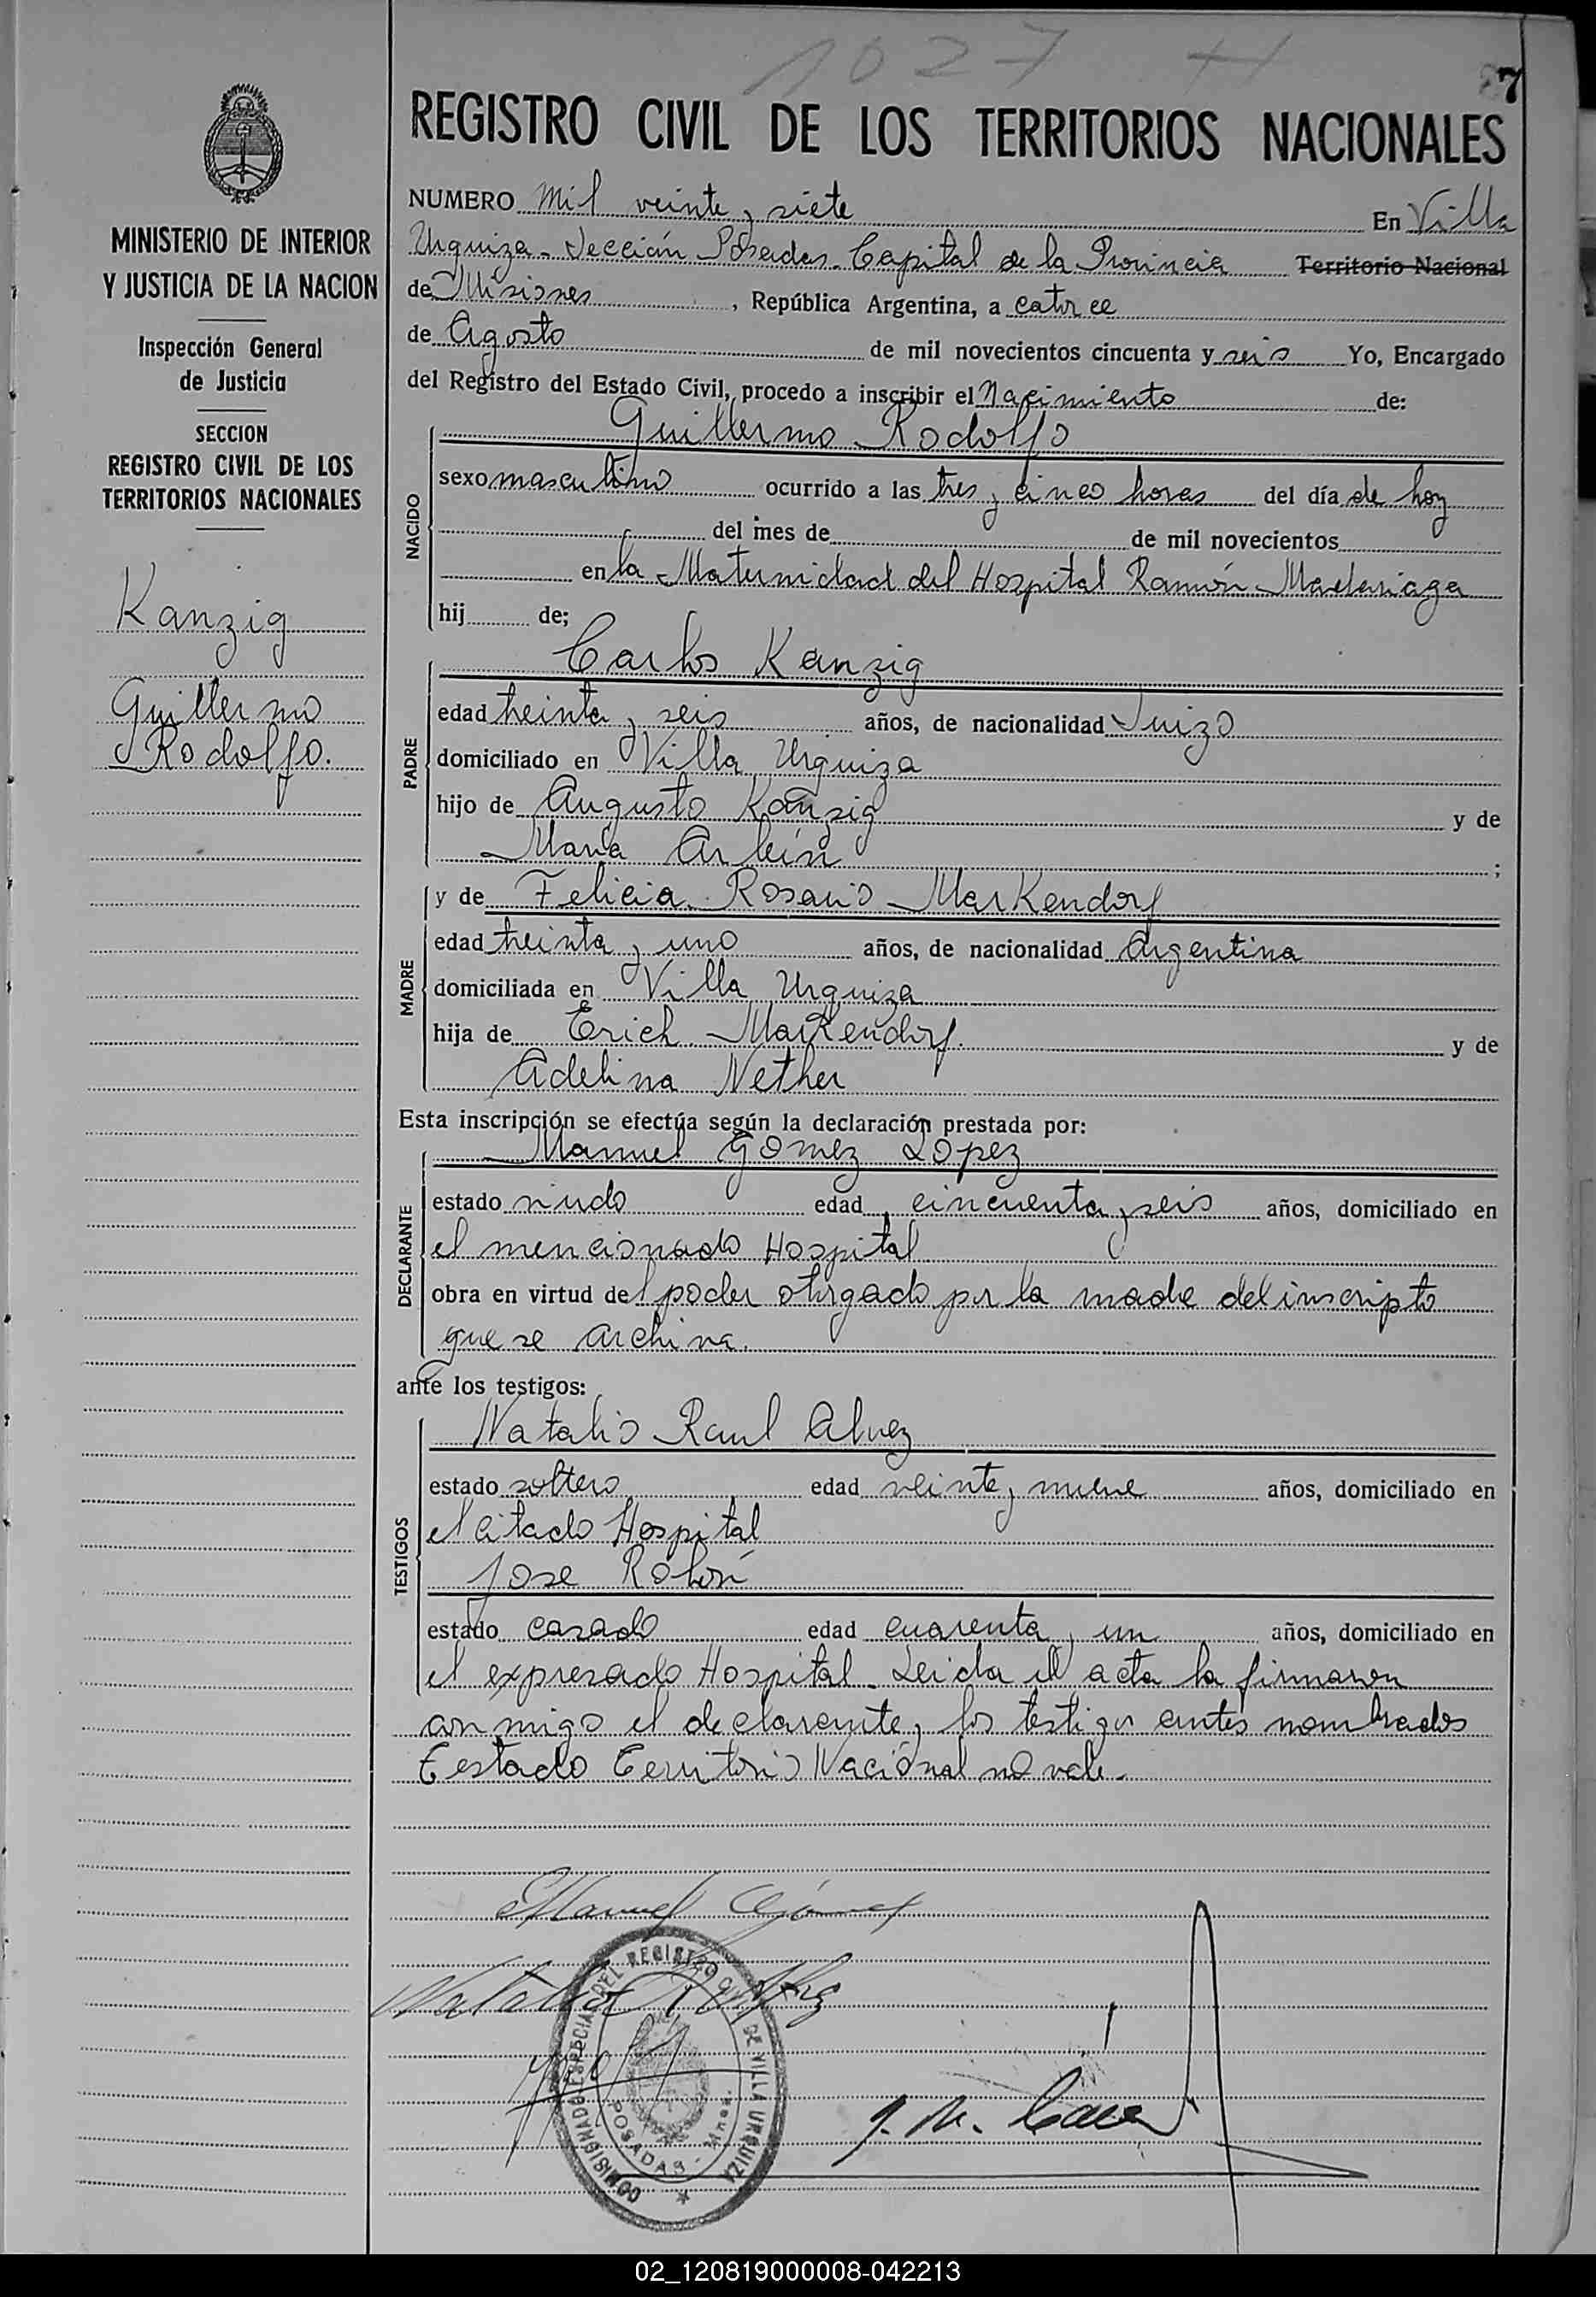 1027 H
7
REGISTRO CIVIL DE LOS TERRITORIOS NACIONALES
MINISTERIO DE INTERIOR
Y JUSTICIA DE LA NACION
Inspección General
de Justicia
SECCION
REGISTRO CIVIL DE LOS
TERRITORIOS NACIONALES
Kanzig
Guillermo
Rodolfo.
NUMERO mil veinte y siete En Villa
Urquiza - Sección Posadas - Capital de la Provincia Territorio Nacional
de Misiones, República Argentina, a catorce
de Agosto de mil novecientos cincuenta y seis Yo, Encargado
del Registro del Estado Civil, procedo a inscribir el Nacimiento de:
NACIDO
Guillermo Rodolfo
sexo masculino ocurrido a las tres y cinco horas del día de hoy
del mes de de mil novecientos
en la Maternidad del Hospital Ramón Madariaga
hij de;
PADRE
Carlos Kanzig
edad treinta y seis años, de nacionalidad Suizo
domiciliado en Villa Urquiza
hijo de Augusto Kanzig y de
María ;
MADRE
y de Felicia Rosario Markendorf
edad treinta y uno años, de nacionalidad Argentina
domiciliada en Villa Urquiza
hija de Erich Markendorf. y de
Adelina Nether
Esta inscripción se efectúa según la declaración prestada por:
DECLARANTE
Manuel Gomez Lopez
estado viudo edad cincuenta y seis años, domiciliado en
el mencionado Hospital
obra en virtud del poder otorgado por la madre del inscripto
que se archiva.
ante los testigos:
TESTIGOS
Natalio Raul Alvez
estado soltero edad veinte y nueve años, domiciliado en
el citado Hospital
Jose Rolón
estado casado edad cuarenta y un años, domiciliado en
el expresado Hospital - Leida el acta la firmaron
conmigo el declarante y los testigos antes nombrados
Testado Territorio Nacional no vale.
Manuel Gómez
Natalio Raul Alvez
COMISIONADO ESPECIAL DEL REGISTRO CIVIL DE VILLA URQUIZA
POSADAS - Mnes.
02_120819000008-042213